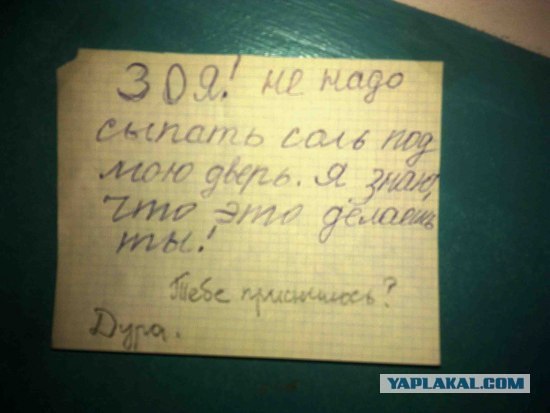 ЗОЯ! не надо
сыпать соль под
мою дверь. Я знаю,
что это делаешь
ты!
Тебе приснилось?
Дура.
YAPLAKAL.COM